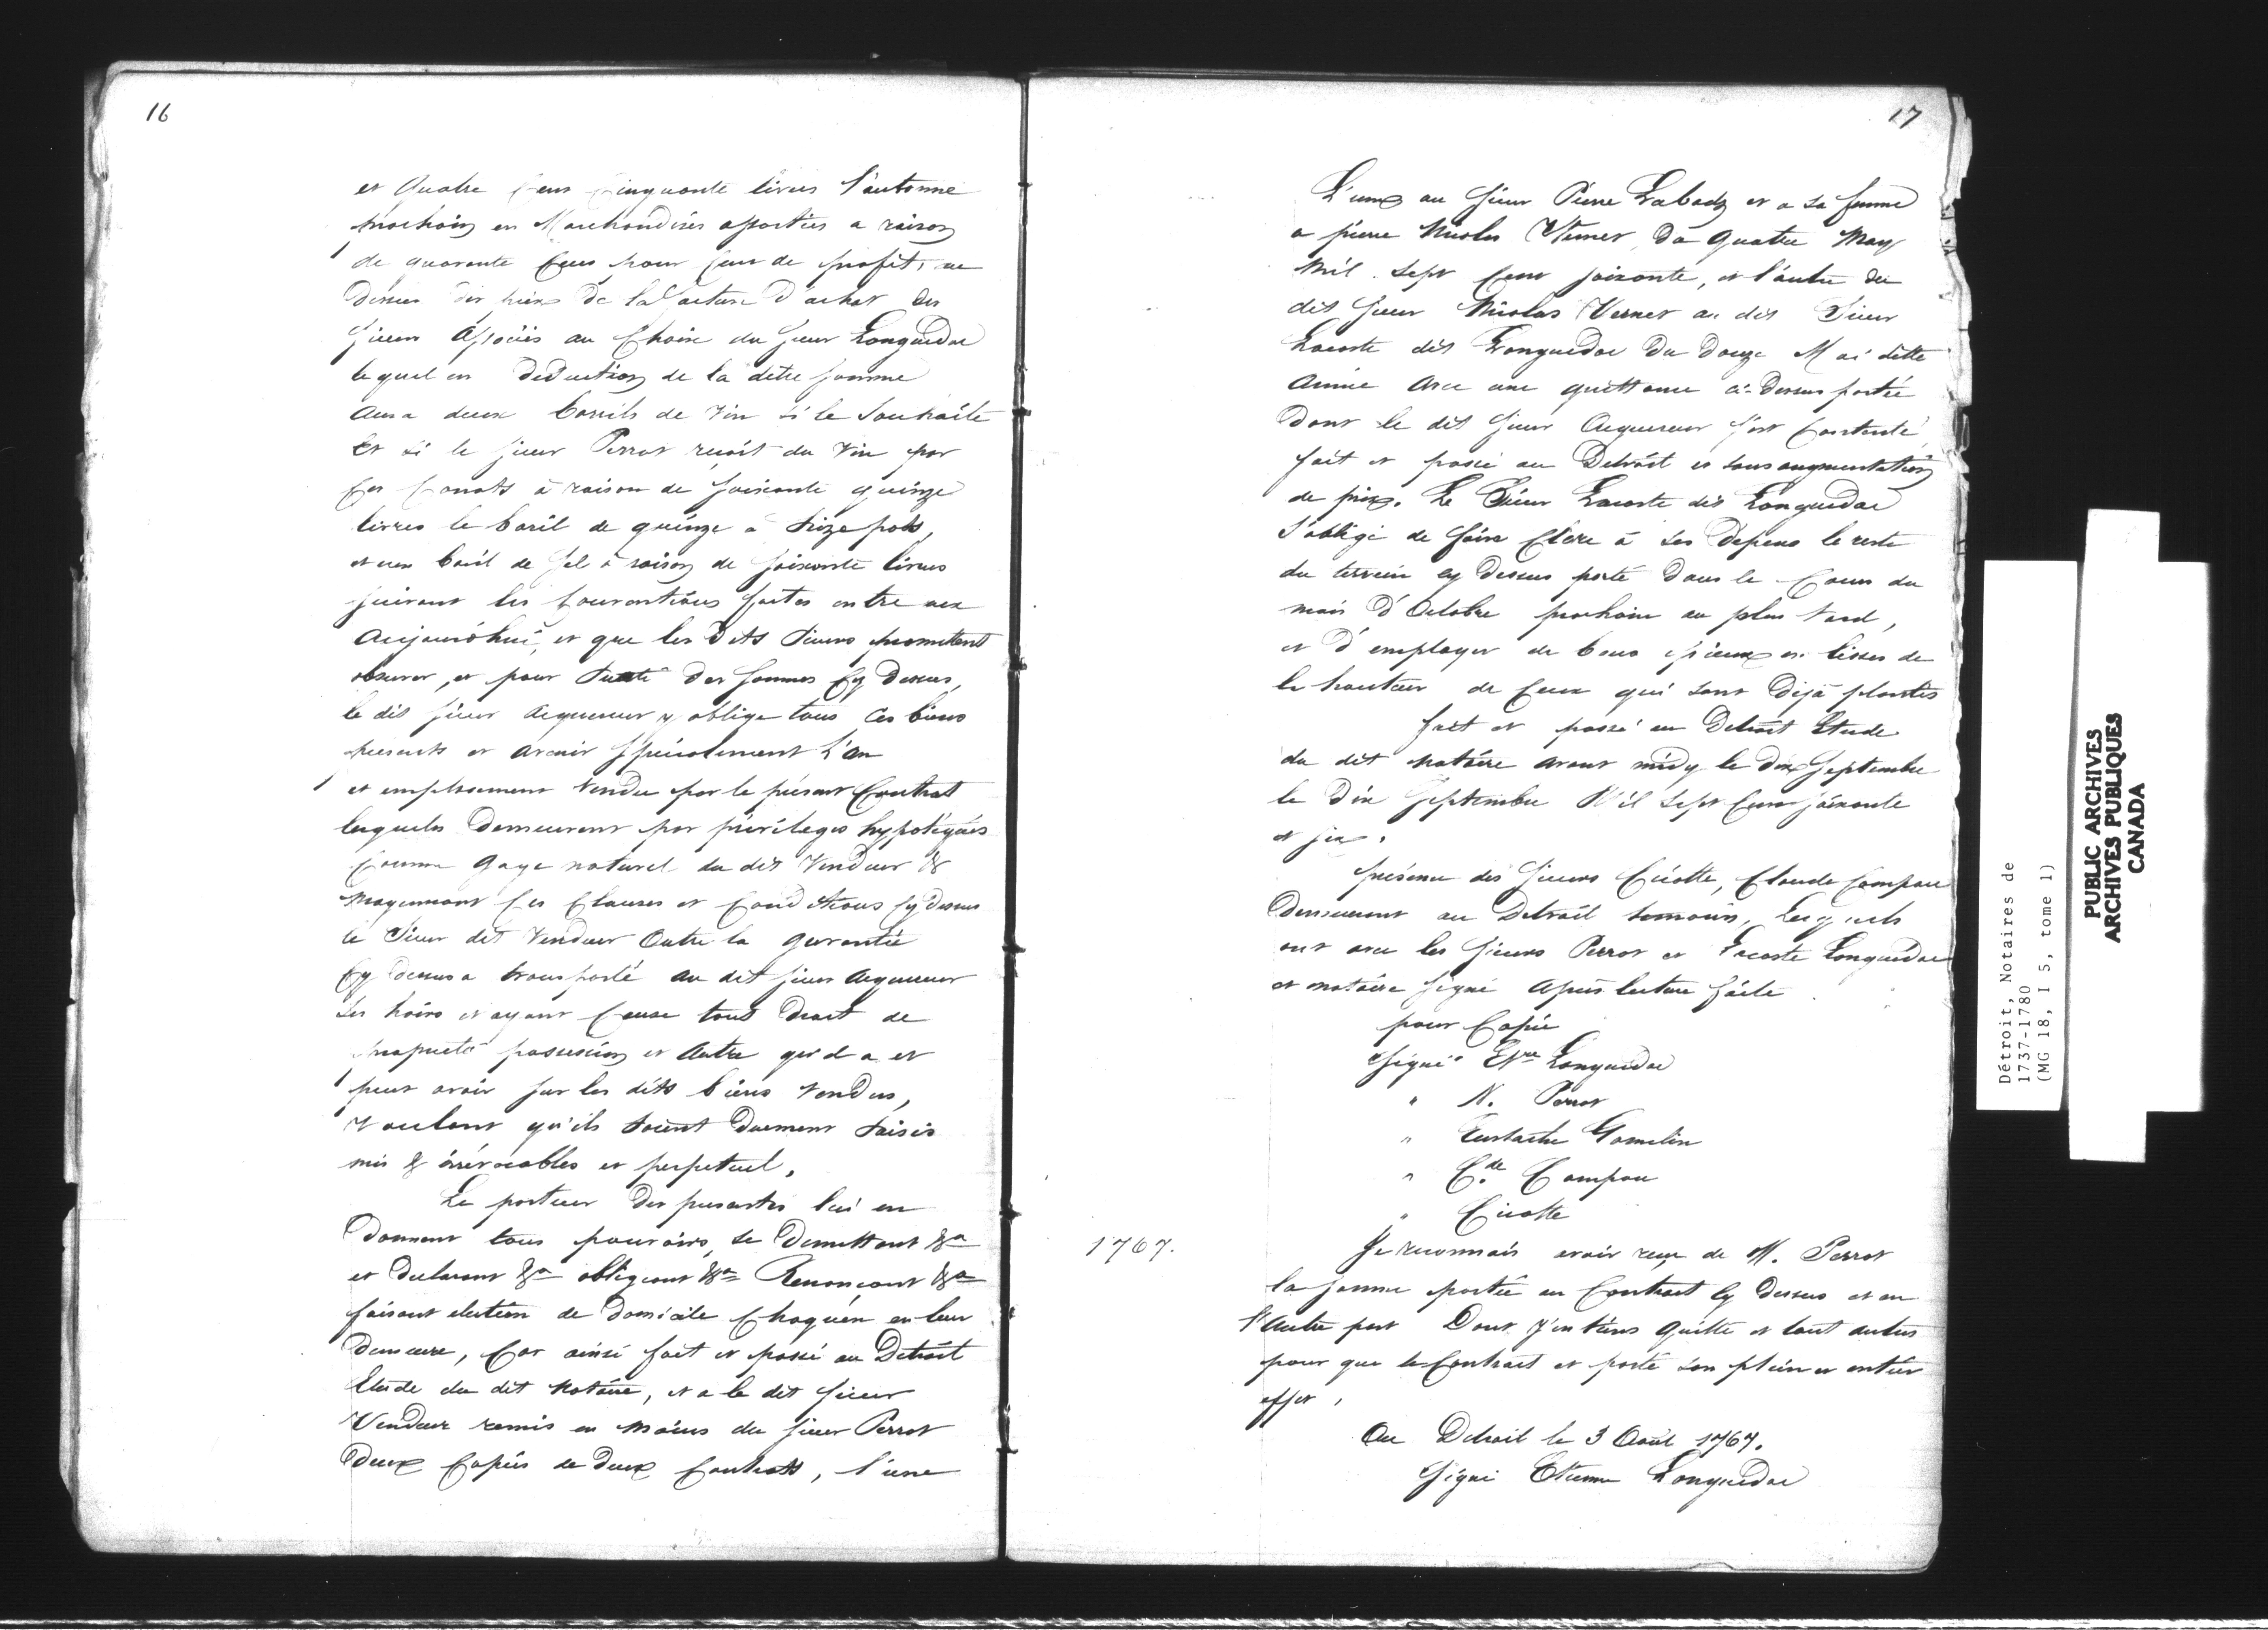 16
et Quatre Cent Cinquante livres l'automne
prochain en Marchandises assorties a raison
de quarante Cent pour Cent de profit, au
dessus des prix de la facture d'achat des
Sieurs Associés au Choix du Sieur Languedoc
lequel en deduction de la dette somme
aura deux barils de vin si le souhaite
Et si le sieur Perrot reçoit du vin par
Ces Canots à raison de soixante quinze
livres le baril de quinze à seize pots,
et un baril de sel à raison de soixante livres
suivant les Conventions faites entre eux
aujourd'hui, et que les dits sieurs promettent
observer, et pour sureté des sommes Cy dessus,
le dit sieur acquereur y oblige tous Ces biens
presents et avenir specialement L'an
et emplacement vendu par le present Contrat
lesquels demeurent par privileges hypotéqués
Comme gage naturel du dit vendeur &
moyennant Ces Clauses et Conditions Cy dessus
le sieur dit vendeur outre la garantie
Cy dessus a transporté au dit sieur acquereur
ses hoirs et ayant Cause tout droit de
propriété possession et autre qu'il a et
peut avoir sur les dits biens vendus,
voulant qu'ils soient duement saisis
mis & irrévocables et perpetuel.
Le porteur des presentes lui en
donnant tous pouvoirs, se demettant &a
et declarant &a obligeant &a Renonçant &a
faisant election de domicile Chaquun en leur
demeure, Car ainsi fait et passé au Detroit
Etude du dit Notaire, et a le dit sieur
Vendeur remis en mains du sieur Perrot
Deux Copies de deux Contrats, l'une
17
L'une au sieur Pierre Labady et a sa femme
a pierre Nicolas Verner du quatre May
Mil Sept Cent soixante, et l'autre du
dit sieur Nicolas Verner au dit Sieur
Lacoste dit Languedoc du douze Mai dette
année avec une quittance ci-dessus portée
dont le dit sieur acquereur s'est Contenté,
fait et passé au Detroit et sans augmentation
de prix. Le Sieur Lacoste dit Languedoc
s'oblige de faire Clore à ses depens le reste
du terrein cy dessus porté dans le Cours du
mois d'Octobre prochain au plus tard,
et d'employer de bons pieux en lisses de
la hauteur de Ceux qui sont déjà plantés
fait et passé au Detroit Etude
du dit Notaire avant midy le dix Septembre
le dix Septembre Mil sept Cent soixante
et six.
présence des sieurs Cicotte, Claude Campau
demeurant au Detroit temoins, Lesquels
ont avec les sieurs Perrot et Lacoste Languedoc
et notaire signé après lecture faite
pour Copie
Signé Etne Languedoc
" N. Perrot
" Eustache Gamelin
" C.de Campau
" Cicotte
1767.
Je reconnais avoir reçu de M. Perrot
la somme portée au Contrat Cy dessus et en
l'autre part Dont j'en tiens quitte et tout autres
pour que le Contrait et porté son plein et entier
effet,
Au Detroit le 3 Août 1767.
Signé Etienne Languedoc
Détroit, Notaires de
1737-1780
(MG 18, I 5, tome 1)
PUBLIC ARCHIVES
ARCHIVES PUBLIQUES
CANADA